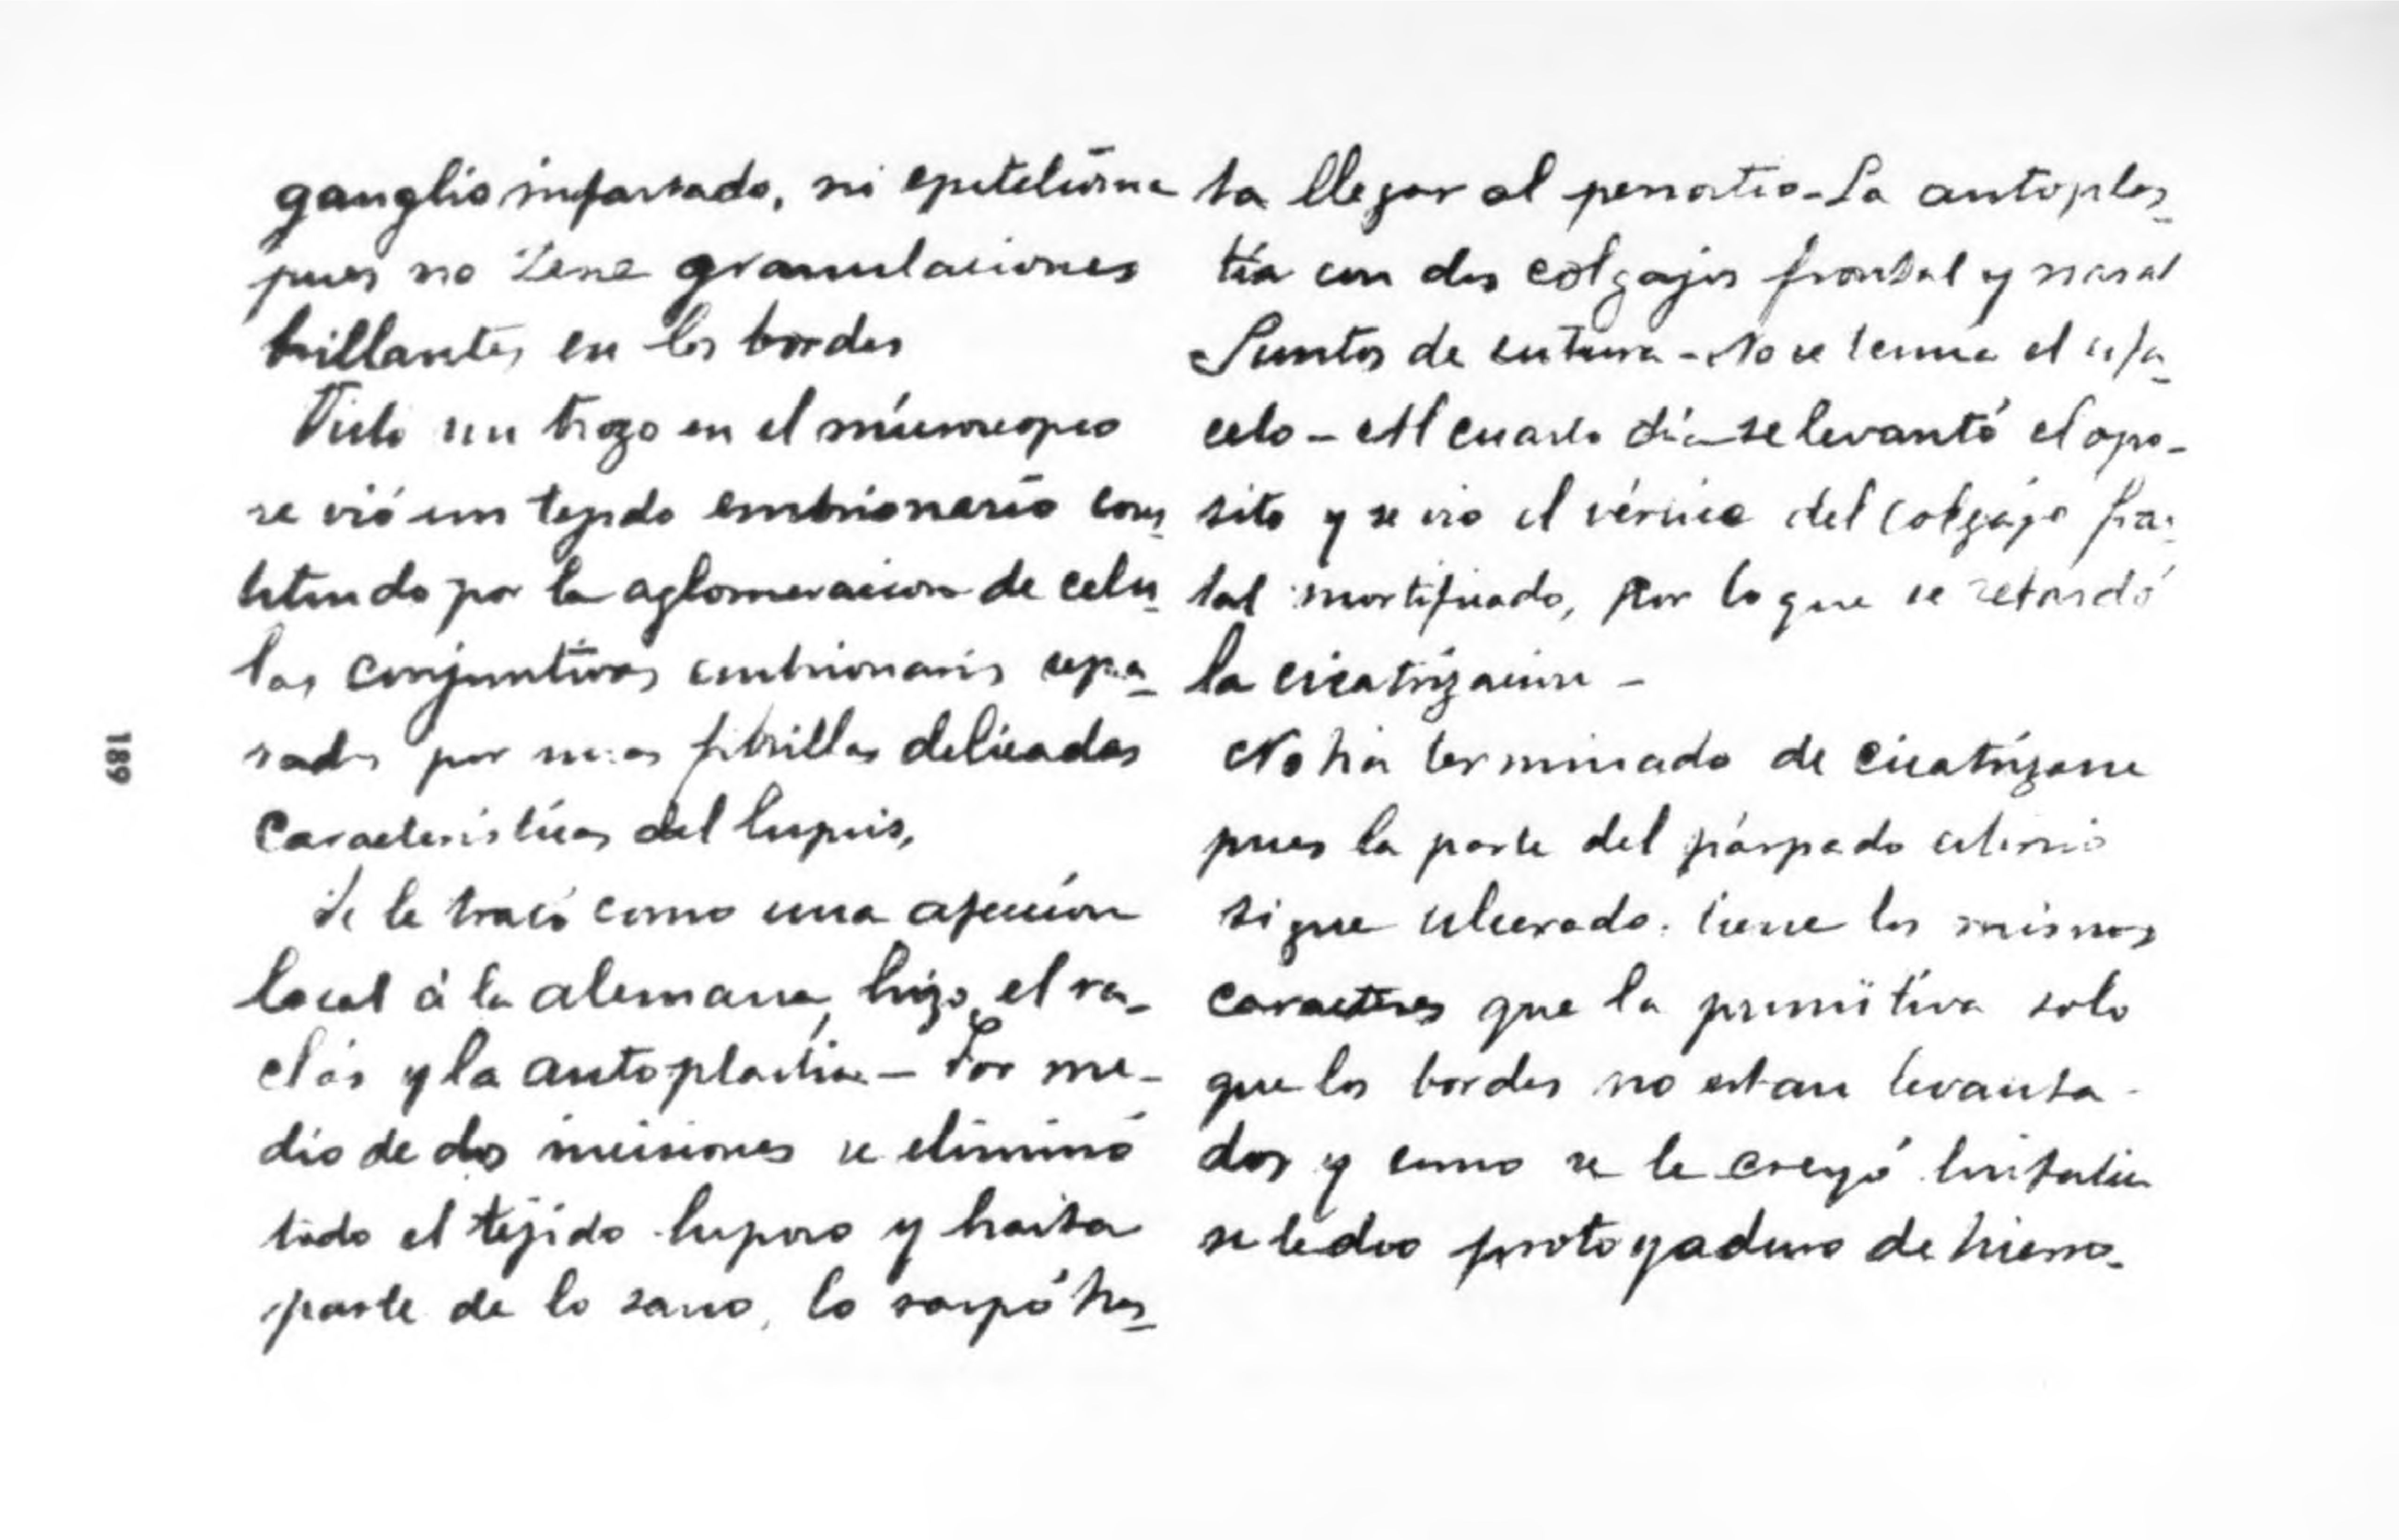 ganglio infartado, ni epitelioma
pues no tiene granulaciones
brillantes en los bordes
Visto un trozo en el microscopio
se vió un tejido embrionario cons_
tituido por la aglomeracion de celu_
las conjuntivas embrionarias sepa_
radas por unas fibrillas delicadas
Caracteristicas del lupus,
Se le trató como una afección
local á la alemana, hizo el ra_
clás y la autoplastia – Por me_
dio de dos incisiones se eliminó
todo el tejido luposo y hasta
parte de lo sano, lo raspó has_
ta llegar al periostio – La autoplas_
tía con dos colgajos frontal y nasal
Puntos de sutura – No se temia el esfa_
celo – Al cuarto día se levantó el apo_
sito y se vio el vértice del colgájo fron_
tal mortificado, por lo que se retardó
la cicatrizacion –
No ha terminado de cicatrizarse
pues la parte del párpado
sigue ulcerado. tiene los mismos
caracteres que la primitiva solo
que los bordes no estan levanta-
dos y como se le creyó
se le dio protoyoduro de hierro.
189